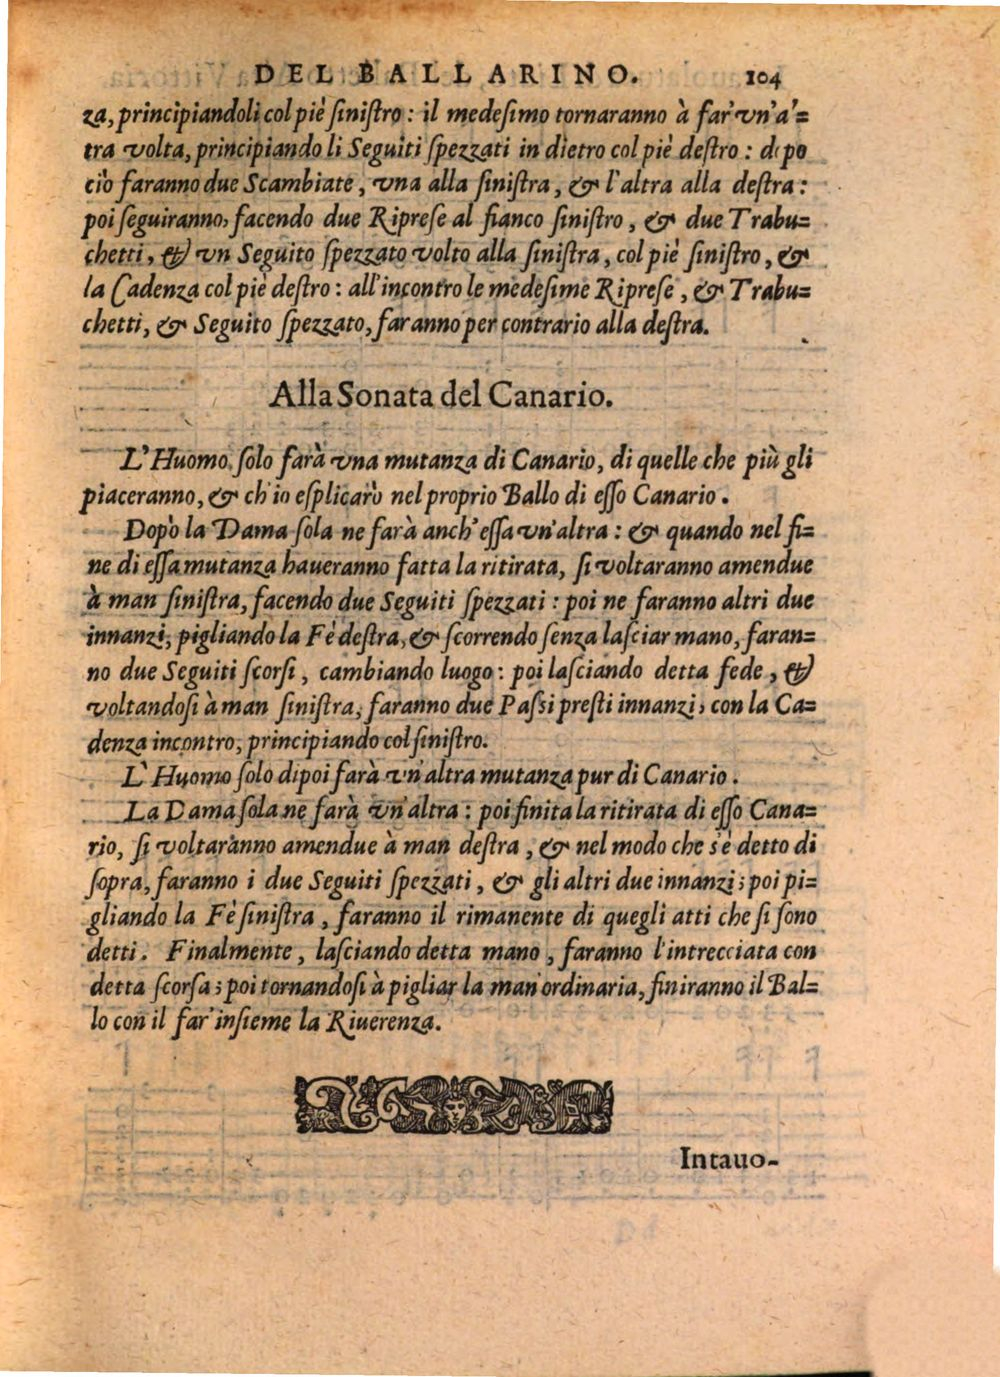 DEL BALLARINO. 104
za, principiandoli col piè siniſtro: il medeſimo tornaranno à far' vn' a'=
tra volta, principiando li Seguiti ſpezzati in dietro col piè deſtro: dopo
ciò faranno due Scambiate, vna alla ſiniſtra, & l'altra alla deſtra:
poi ſeguiranno, facendo due Ripreſe al fianco ſiniſtro, & due Trabu=
chetti, & vn Seguito ſpezzato volto alla ſiniſtra, col piè ſiniſtro, &
la Cadenza col piè deſtro: all'incontro le medeſime Ripreſe, & Trabu=
chetti, & Seguito ſpezzato, faranno per contrario alla deſtra.
Alla Sonata del Canario.
L'Huomo ſolo farà vna mutanza di Canario, di quelle che più gli
piaceranno, & ch'io eſplicarò nel proprio Ballo di eſſo Canario.
Dopò la Dama ſola ne farà anch'eſſa vn'altra: & quando nel fi=
ne di eſſa mutanza haueranno fatta la ritirata, ſi voltaranno amendue
à man ſiniſtra, facendo due Seguiti ſpezzati: poi ne faranno altri due
innanzi, pigliando la Fè deſtra, & ſcorrendo ſenza laſciar mano, faran=
no due Seguiti ſcorſi, cambiando luogo: poi laſciando detta fede, &
voltandoſi à man ſiniſtra, faranno due Paſſi preſti innanzi, con la Ca=
denza incontro, principiando col ſiniſtro.
L'Huomo ſolo dipoi farà vn'altra mutanza pur di Canario.
La Dama ſola ne farà vn'altra: poi finita la ritirata di eſſo Cana=
rio, ſi voltaranno amendue à man deſtra, & nel modo che s'è detto di
ſopra, faranno i due Seguiti ſpezzati, & gli altri due innanzi; poi pi=
gliando la Fè ſiniſtra, faranno il rimanente di quegli atti che ſi ſono
detti. Finalmente, laſciando detta mano, faranno l'intrecciata con
detta ſcorſa; poi tornandoſi à pigliar la man' ordinaria, finiranno il Bal=
lo con il far' inſieme la Riuerenza.
Intauo-